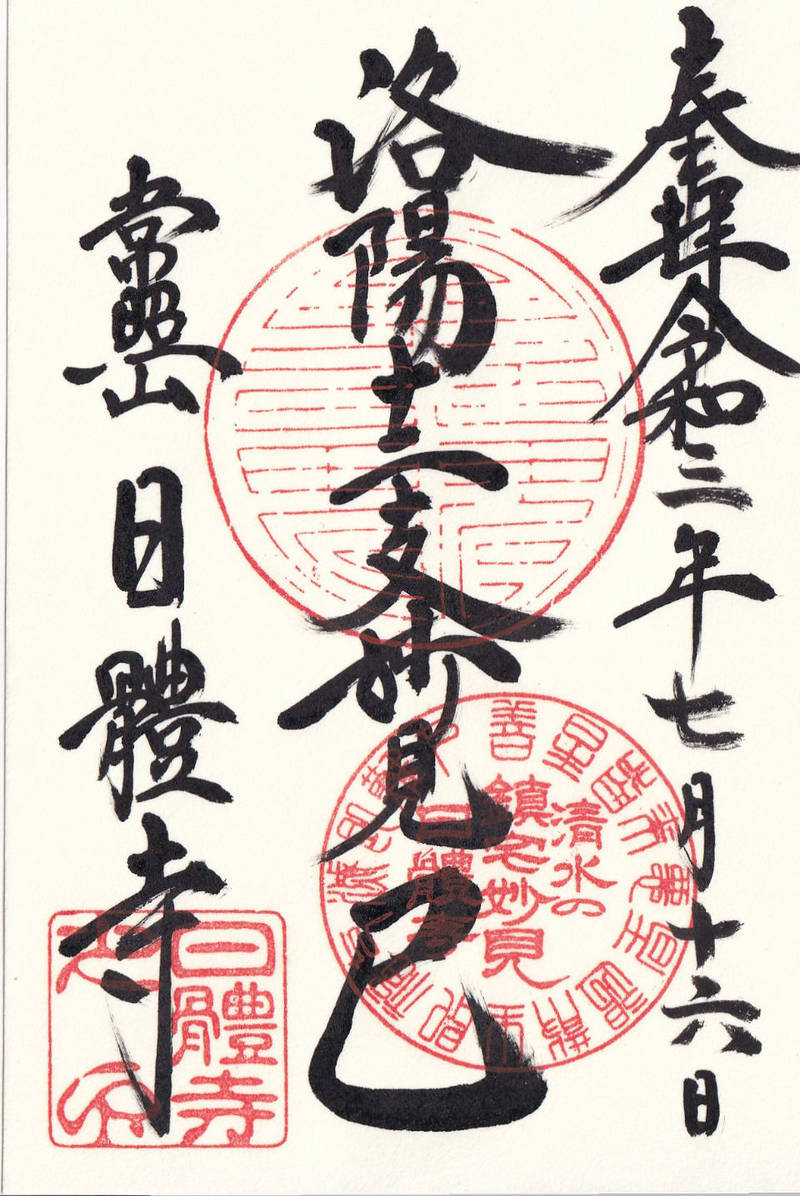 奉拝令和三年七月十六日
洛陽十二支妙見巳
常照山 日體寺
清水の
鎮宅妙見
日體寺
日體寺
之印